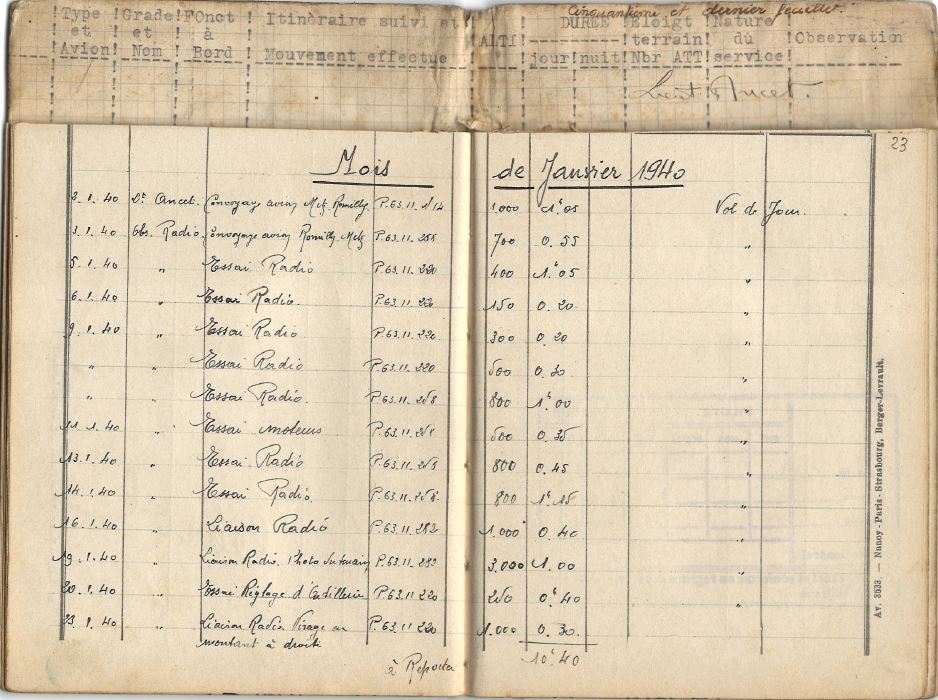 Cinquantième et dernier feuillet.
Type et Avion Grade et Nom FOnct à Bord Itinèraire suivi et Mouvement effectue ALTI DUREE jour nuit Eloigt terrain Nbr ATT Nature du service Observation
Lieut Ancet.
23
Mois de Janvier 1940
3.1.40 Lt Ancet. Convoyage avion Metz. Romilly. P.63.11. 1000 1h05 Vol de Jour.
3.1.40 Obs. Radio. Convoyage avion Romilly. Metz P.63.11. 700 0.55 "
5.1.40 " Essai Radio P.63.11.220 400 1h05 "
6.1.40 " Essai Radio. P.63.11.220 150 0.20 "
9.1.40 " Essai Radio P.63.11.220 300 0.20 "
" " Essai Radio P.63.11.220 500 0.30 "
" " Essai Radio. P.63.11. 800 1h00 "
11.1.40 " Essai moteurs P.63.11. 500 0.35 "
13.1.40 " Essai Radio P.63.11. 800 0.45 "
14.1.40 " Essai Radio. P.63.11. 800 1h15
16.1.40 " Liaison Radio P.63.11.282 1.000 0.40 "
19.1.40 " Liaison Radio. Photo P.63.11.292 3.000 1.00 "
20.1.40 " Essai Réglage d'Artillerie P.63.11.220 250 0h40 "
23.1.40 " Liaison Radio Virage en P.63.11.220 1.000 0.30.
montant à droite
à Reporter 10h40
Av. 3533. — Nancy-Paris-Strasbourg, Berger-Levrault.